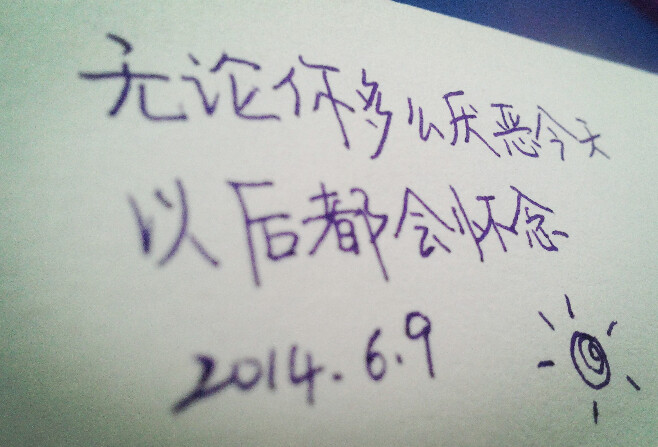 无论你多么厌恶今天
以后都会怀念
2014.6.9